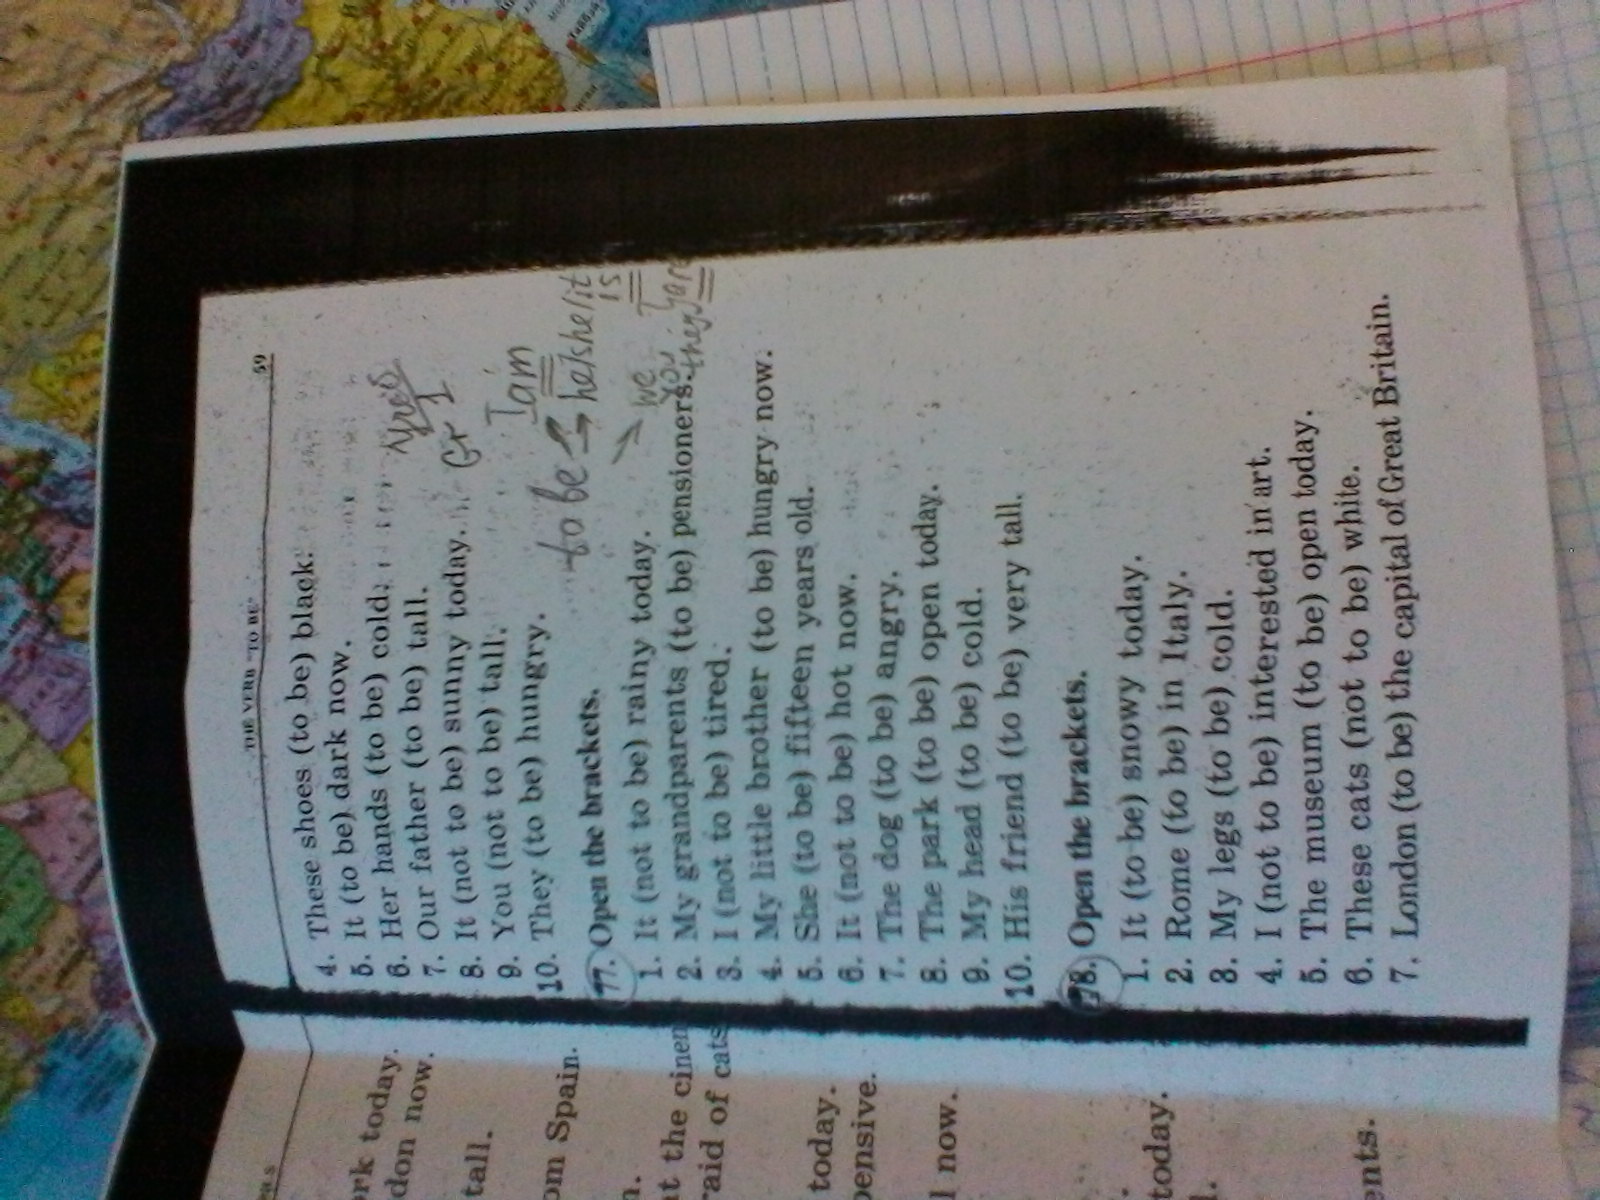 THE VERB "TO BE" 59
4. These shoes (to be) black.
5. It (to be) dark now.
6. Her hands (to be) cold.
7. Our father (to be) tall.
8. It (not to be) sunny today.
9. You (not to be) tall.
10. They (to be) hungry.
Gr 1
to be
I am
he/she/it
is
we
you
they
are
77. Open the brackets.
1. It (not to be) rainy today.
2. My grandparents (to be) pensioners.
3. I (not to be) tired.
4. My little brother (to be) hungry now.
5. She (to be) fifteen years old.
6. It (not to be) hot now.
7. The dog (to be) angry.
8. The park (to be) open today.
9. My head (to be) cold.
10. His friend (to be) very tall.
78. Open the brackets.
1. It (to be) snowy today.
2. Rome (to be) in Italy.
3. My legs (to be) cold.
4. I (not to be) interested in art.
5. The museum (to be) open today.
6. These cats (not to be) white.
7. London (to be) the capital of Great Britain.
today.
don now.
tall.
Spain.
the
cats
today.
now.
today.